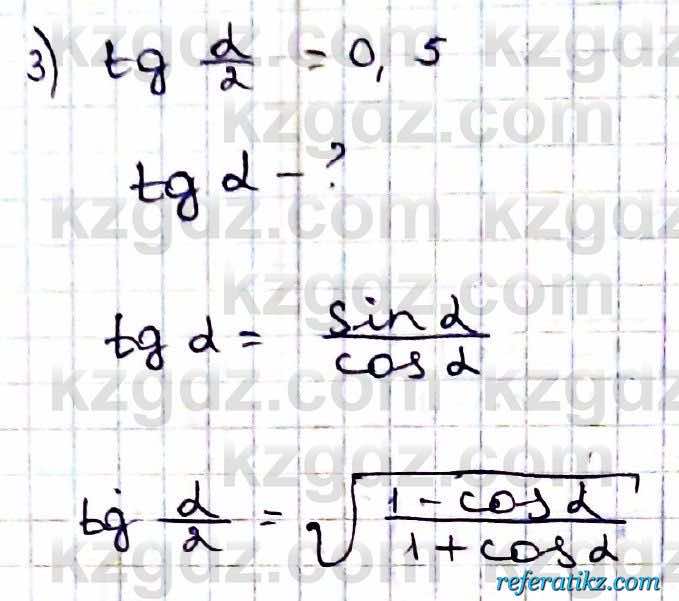 3) tg α/2 = 0,5
tg α - ?
tg α = sin α / cos α
tg α/2 = √((1 - cos α)/(1 + cos α))
kzgdz.com
kzgdz.com
kzgdz.com
kzgdz.com
kzgdz.com
kzgdz.com
kzgdz.com
referatikz.com